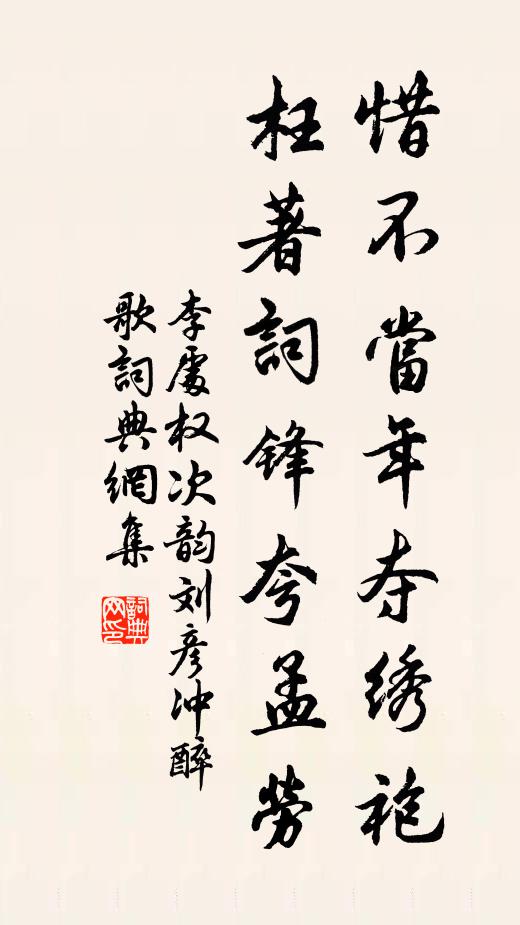 惜不當年夺綉袍
枉著詞锋夸孟勞
李處权次韵刘彦冲醉
歌詞典網集
詞典
网印